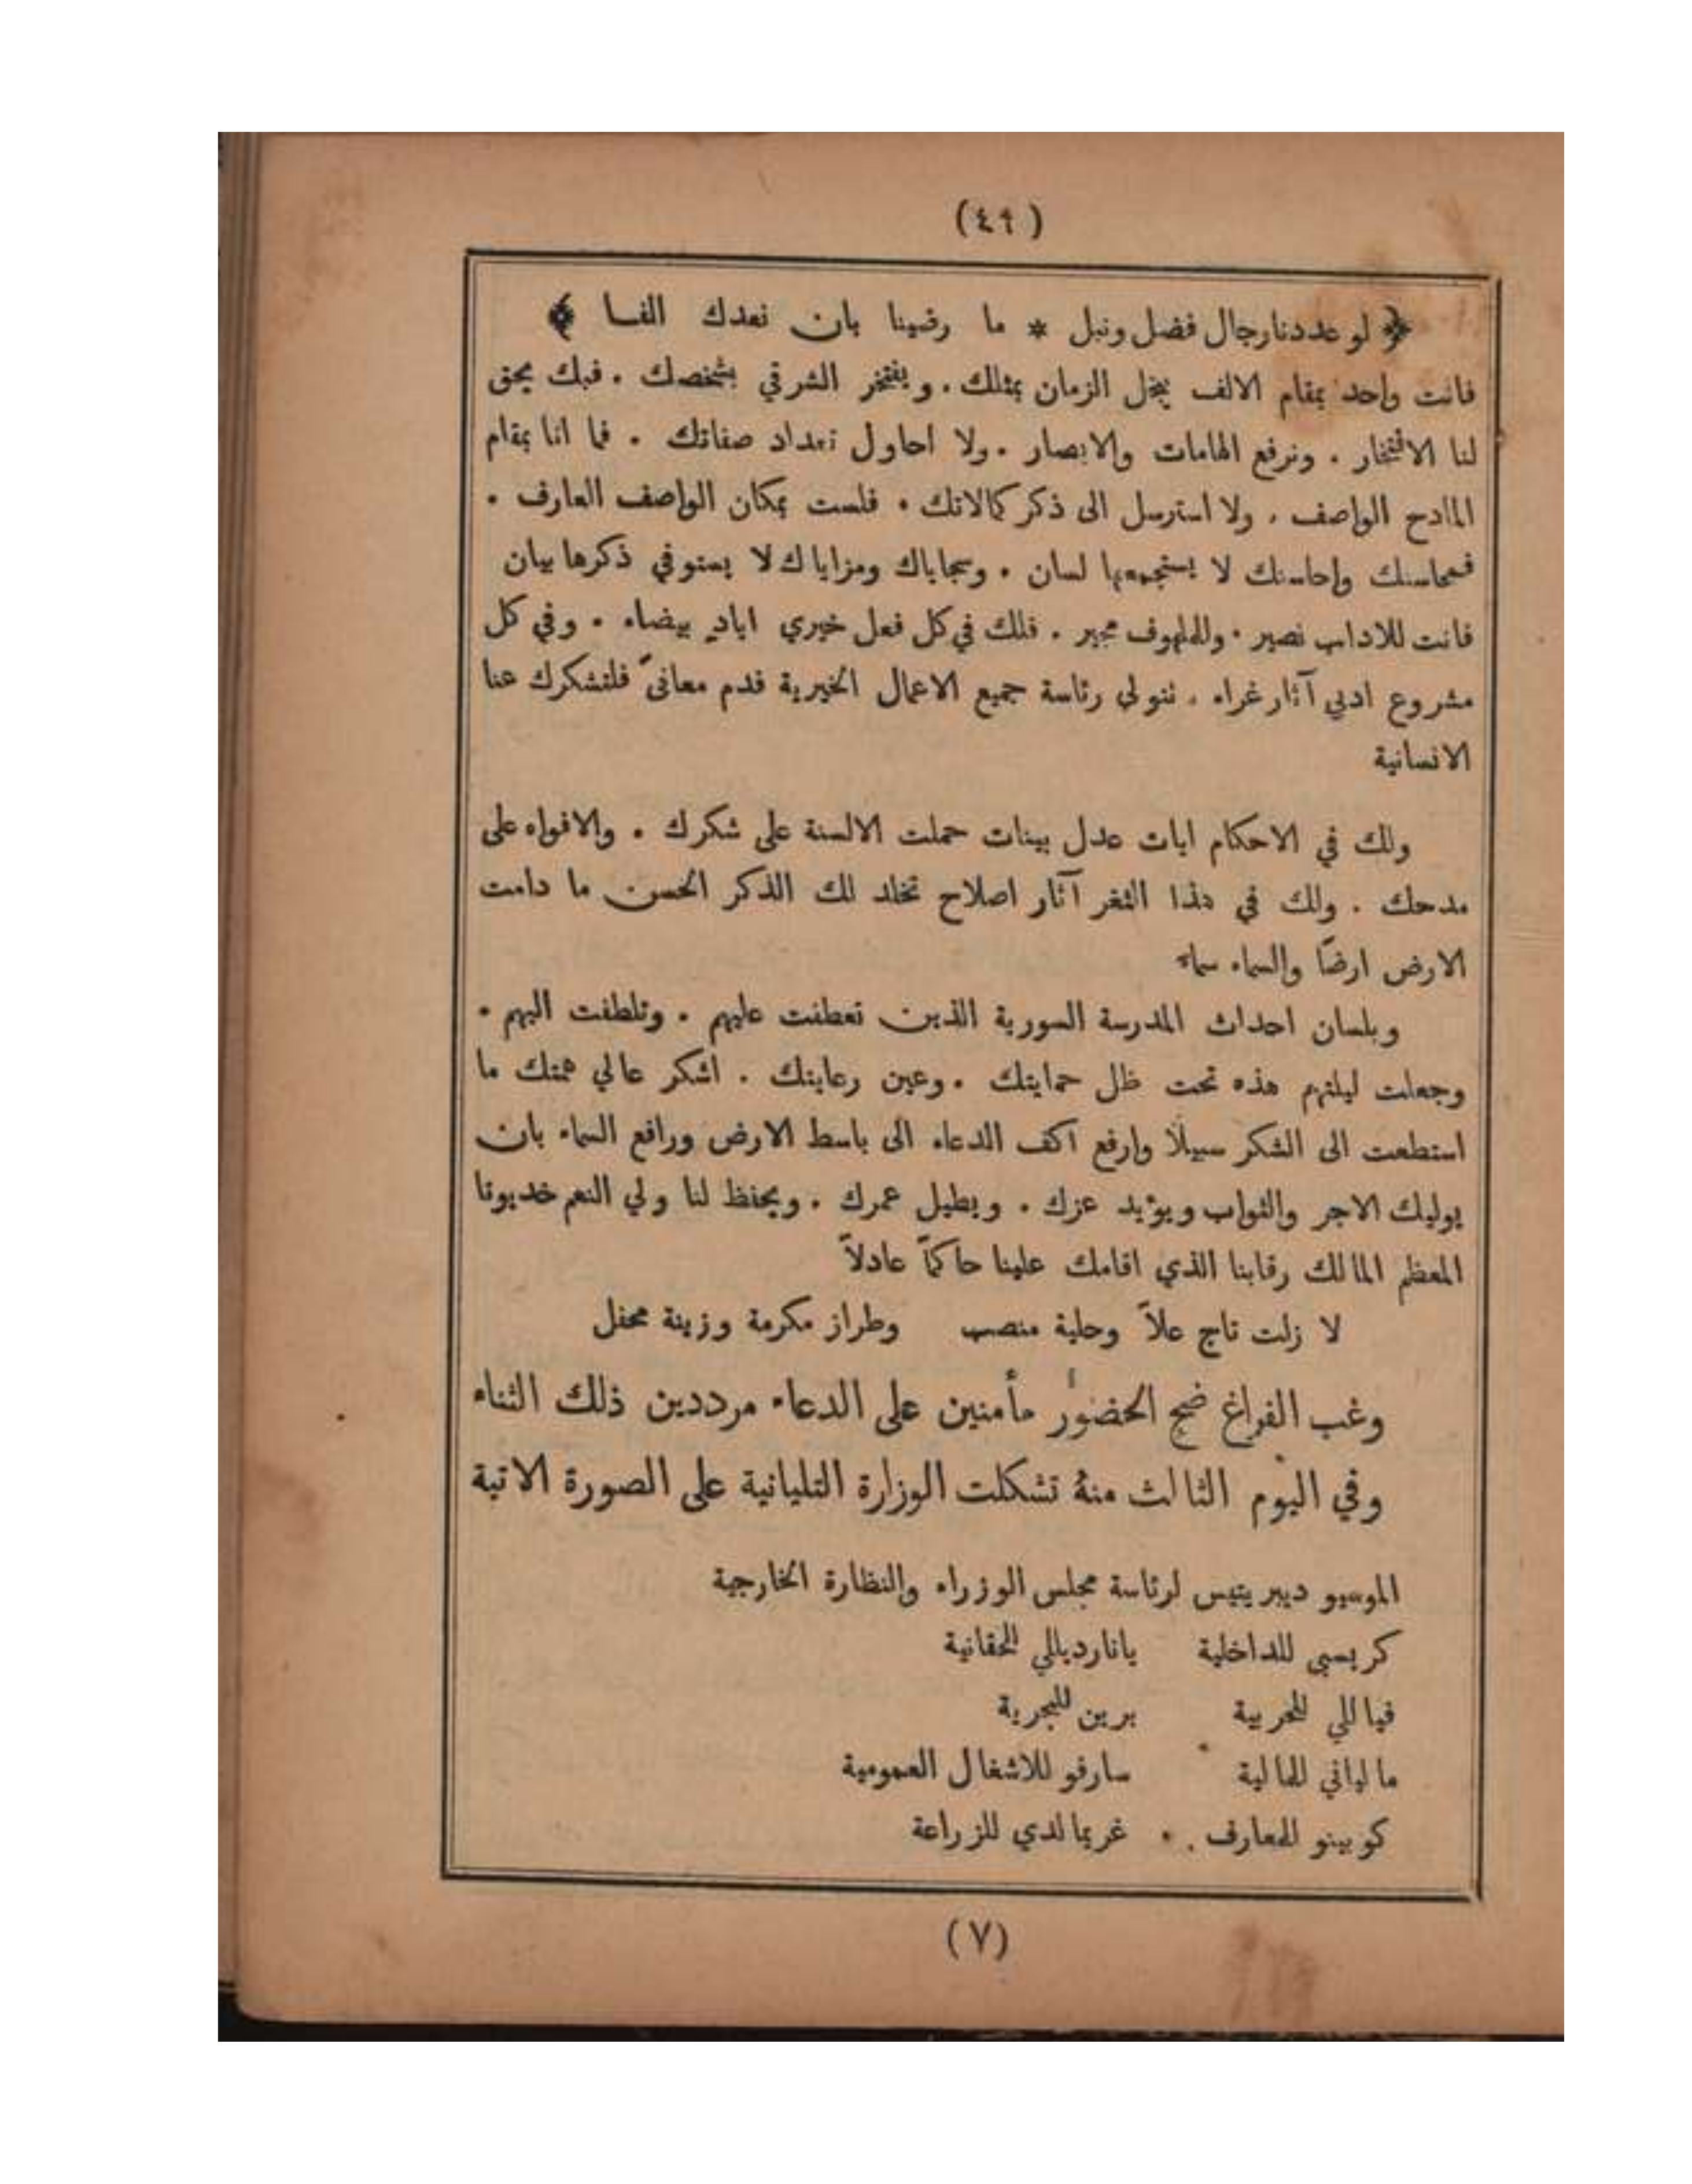 (٤٩)
﴿ لو عددنا رجال فضل ونبل * ما رضينا بان نعدك الفا ﴾
فانت واحد بمقام الالف يبخل الزمان بمثلك . ويفتخر الشرقي بشخصك . فبك يحق
لنا الافتخار . ونرفع الهامات والابصار . ولا احاول تعداد صفاتك . فما انا بمقام
المادح الواصف . ولا استرسل الى ذكر كمالاتك . فلست بمكان الواصف العارف .
فمحاسنك واحاسنك لا يستجمعها لسان . وسجاياك ومزاياك لا يستوفي ذكرها بيان
فانت للاداب نصير . وللملهوف مجير . فلك في كل فعل خيري اياد بيضاء . وفي كل
مشروع ادبي آثار غراء . نتولى رئاسة جميع الاعمال الخيرية فدم معافىً فلتشكرك عنا
الانسانية
ولك في الاحكام ايات عدل بينات حملت الالسنة على شكرك . والافواه على
مدحك . ولك في هذا الثغر آثار اصلاح تخلد لك الذكر الحسن ما دامت
الارض ارضًا والسماء سماء
وبلسان احداث المدرسة السورية الذين تعطفت عليهم . وتلطفت اليهم .
وجعلت ليلتهم هذه تحت ظل حمايتك . وعين رعايتك . اشكر عالي همتك ما
استطعت الى الشكر سبيلاً وارفع اكف الدعاء الى باسط الارض ورافع السماء بان
يوليك الاجر والثواب ويؤيد عزك . ويطيل عمرك . ويحفظ لنا ولي النعم خديونا
المعظم المالك رقابنا الذي اقامك علينا حاكمًا عادلاً
لا زلت تاج علاً وحلية منصب وطراز مكرمة وزينة محفل
وغب الفراغ ضج الحضور مأمنين على الدعاء مرددين ذلك الثناء
وفي اليوم الثالث منهُ تشكلت الوزارة التليانية على الصورة الاتية
الموسيو ديبريتيس لرئاسة مجلس الوزراء والنظارة الخارجية
كريسبي للداخلية يانارديللي للحقانية
فياللي للحربية برين للبحرية
مالياني للمالية سارفو للاشغال العمومية
كوبينو للمعارف . غريمالدي للزراعة
(٧)